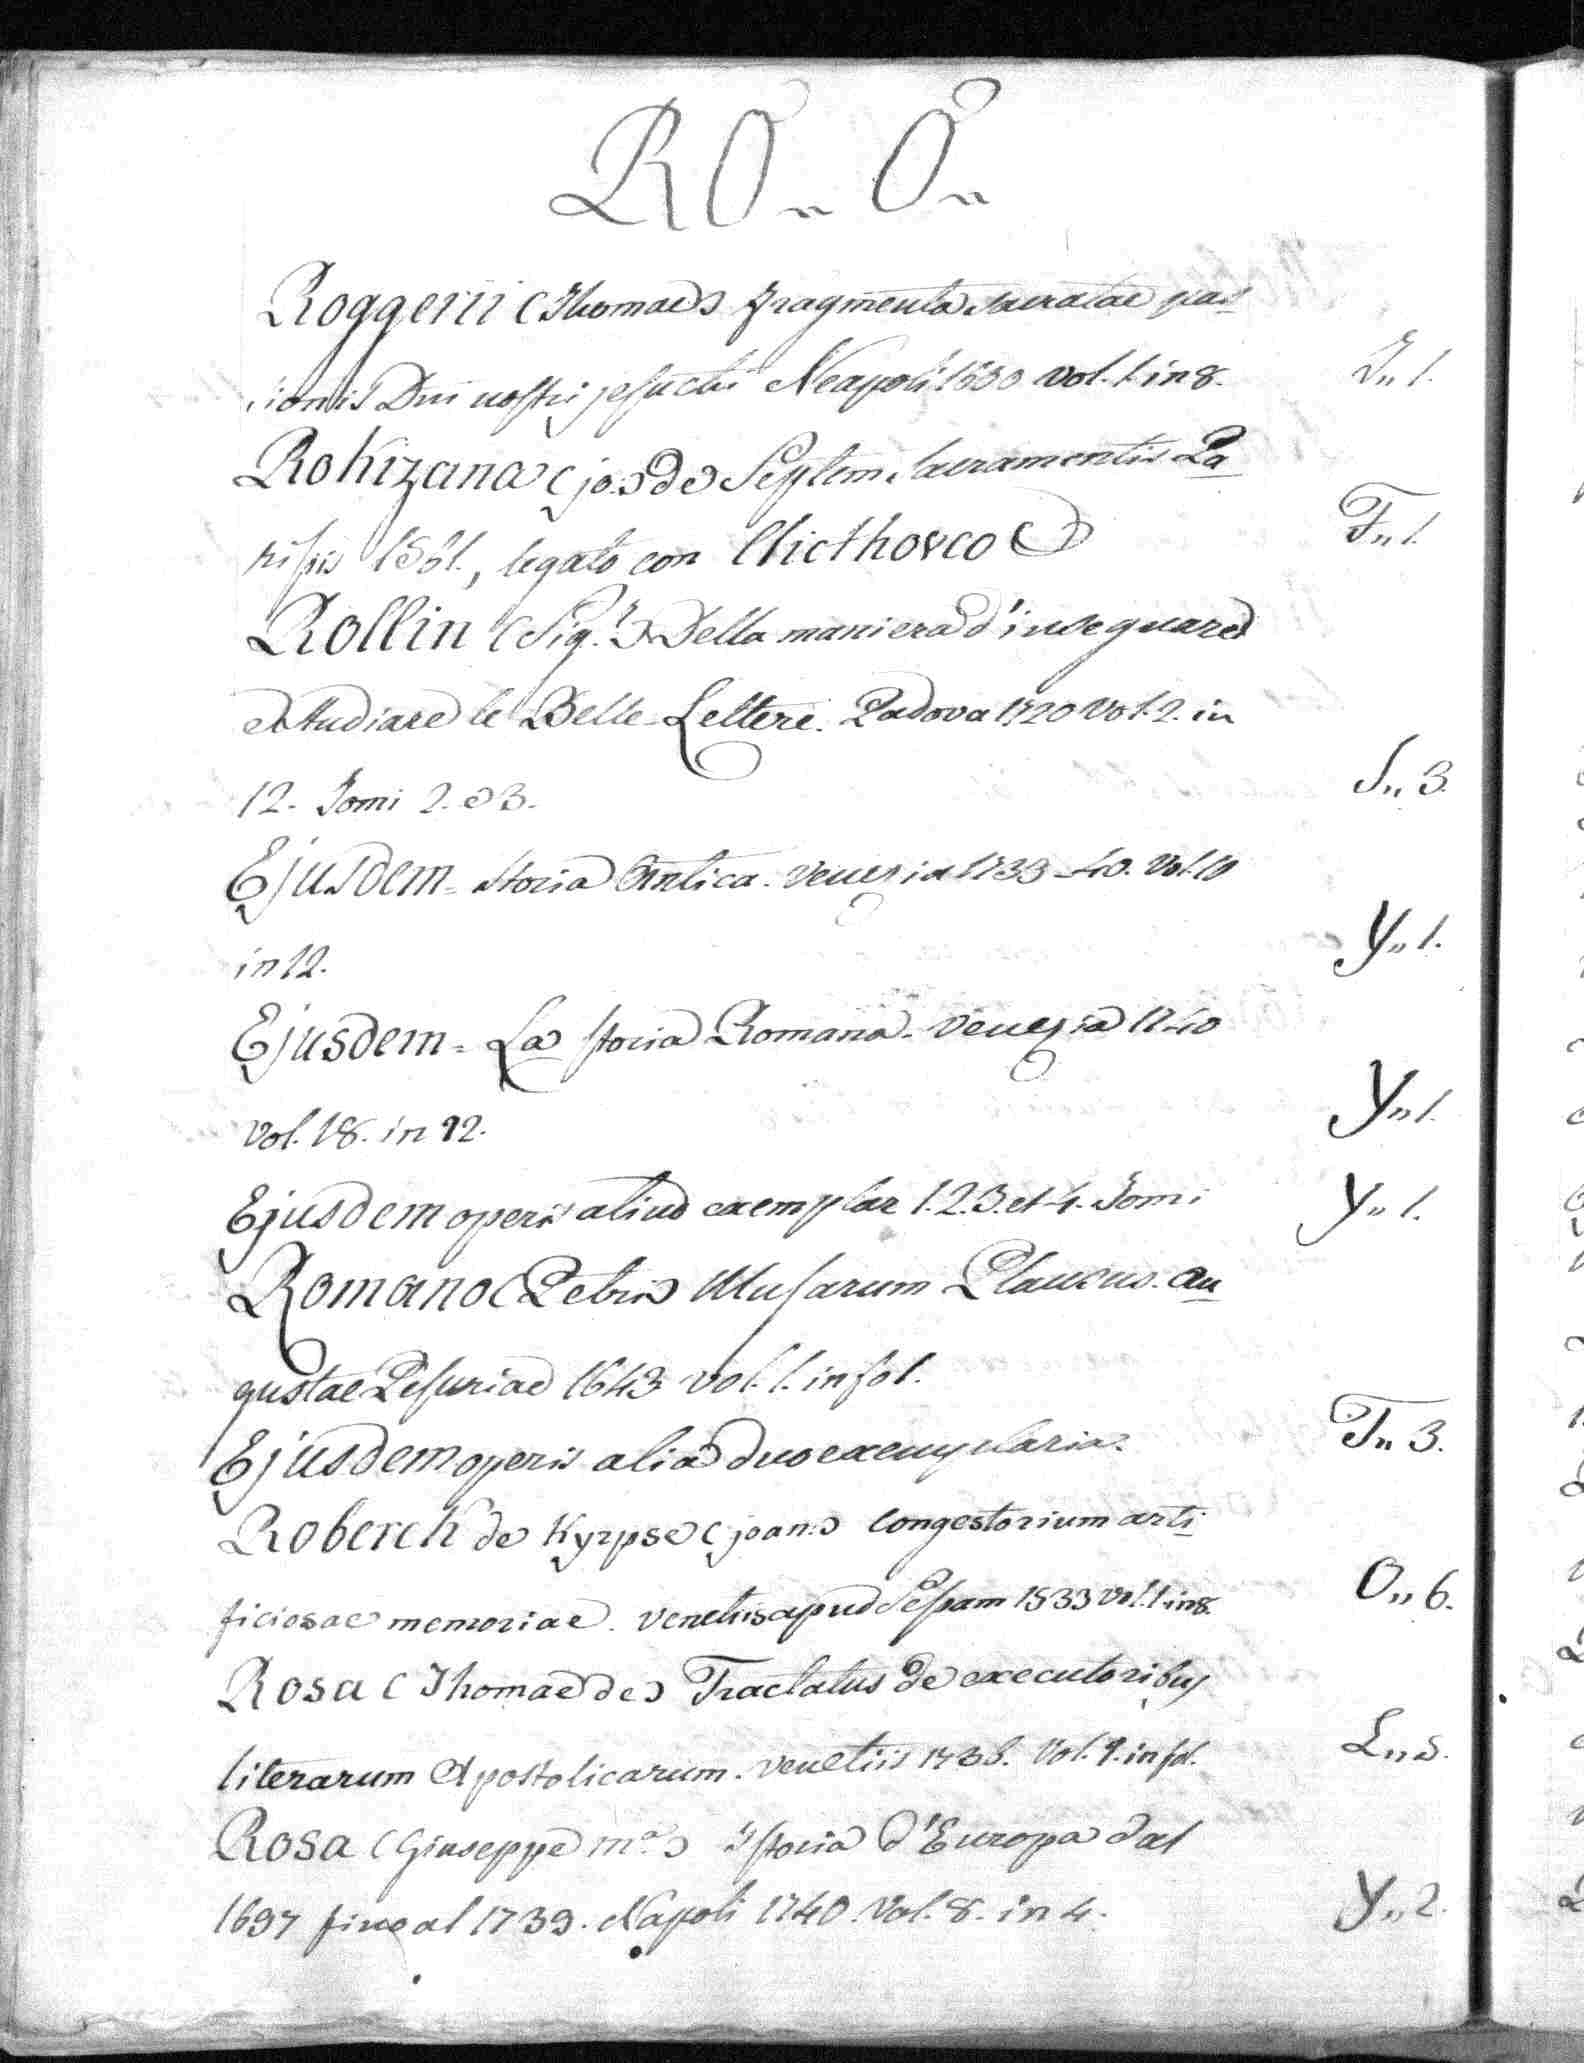 RO„ O„
Roggerii (Thomae) fragmenta sacratae pas
sionis Dni nostri jesuchti Neapoli 1630 vol. 1. in 8. I„ 1.
Rokizana (jo:) de Septem Sacramentis Pa
risiis 1561., legato con Clicthoveo F„ 1.
Rollin (Sig.r) Della maniera d'insegnare
e studiare le Belle Lettere. Padova 1720 Vol. 2. in
12. Tomi 2. e 3. S„ 3.
Ejusdem = Storia Antica. Venezia 1733-40. Vol. 10
in 12. Y„ 1.
Ejusdem = La storia Romana. Venezia 1740
Vol. 18. in 12. Y„ 1.
Ejusdem operis aliud exemplar 1. 2. 3. et 4. Tomi Y„ 1.
Romano (Petri) Musarum Plausus. Au
gustae Pesuriae 1643 vol. 1. in fol.
Ejusdem operis alia duo exemplaria. T„ 3.
Roberch de Kyrpse (joan:) Congestorium arti
ficiosae memoriae. Venetiis apud Sessam 1533 Vol. 1. in 8. O„ 6.
Rosa (Thomae de) Tractatus de executoribus
literarum Apostolicarum. Venetiis 1738. Vol. 1. in fol. L„ 5.
Rosa (Giuseppe m.a) Istoria d'Europa dal
1697 fino al 1739. Napoli 1740. Vol. 8. in 4. Y„ 2.